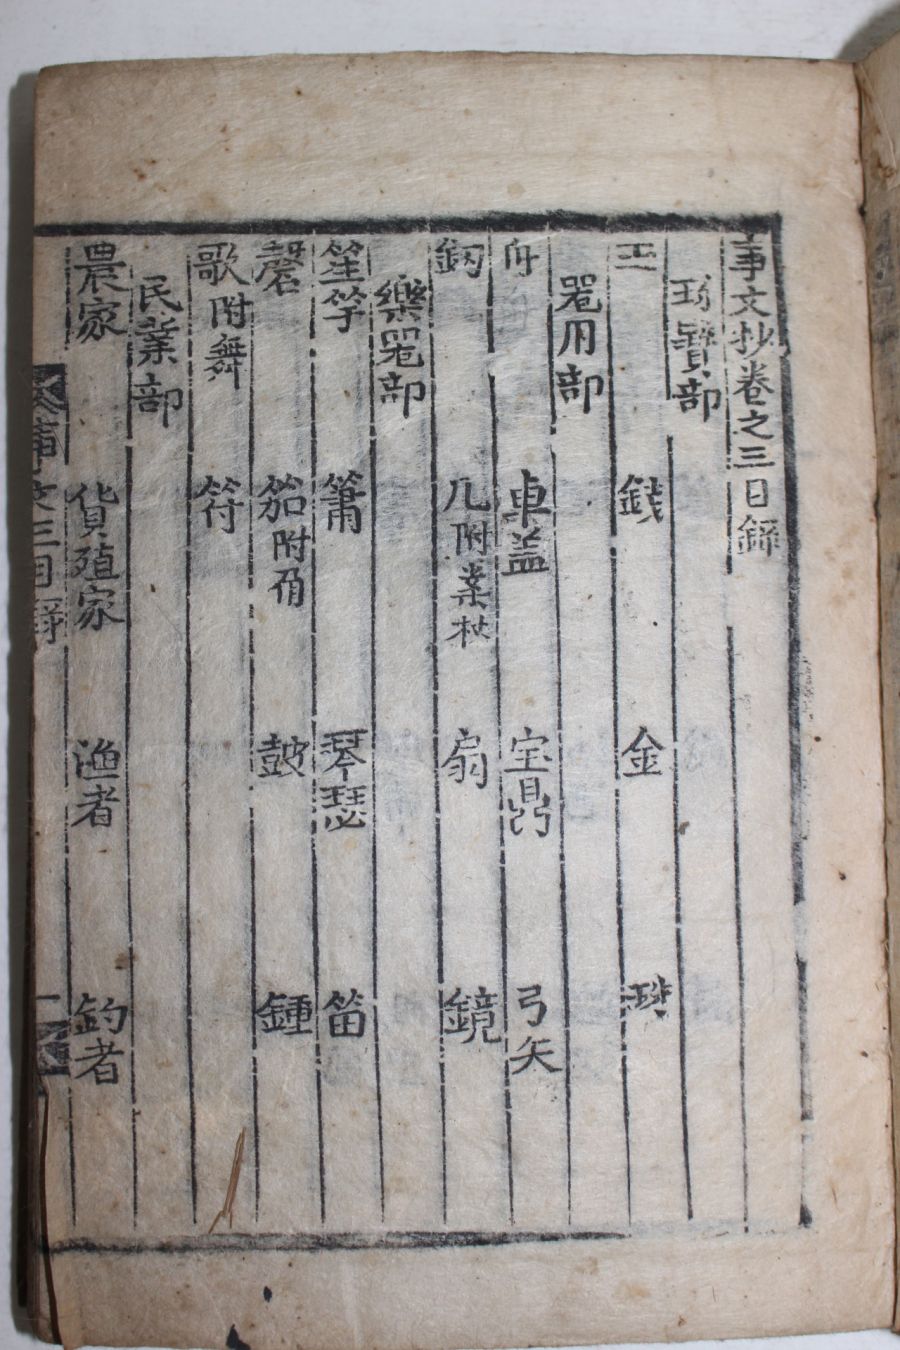 事文抄卷之三目錄
珎寶部
玉 錢 金 珠
噐用部
舟 車盖 宝鼎 弓矢
釰 几附案杖 扇 鏡
樂噐部
笙竽 簫 琴瑟 笛
磬 笳附角 鼓 鍾
歌附舞 符
民業部
農家 貨殖家 漁者 釣者
文三目錄 一